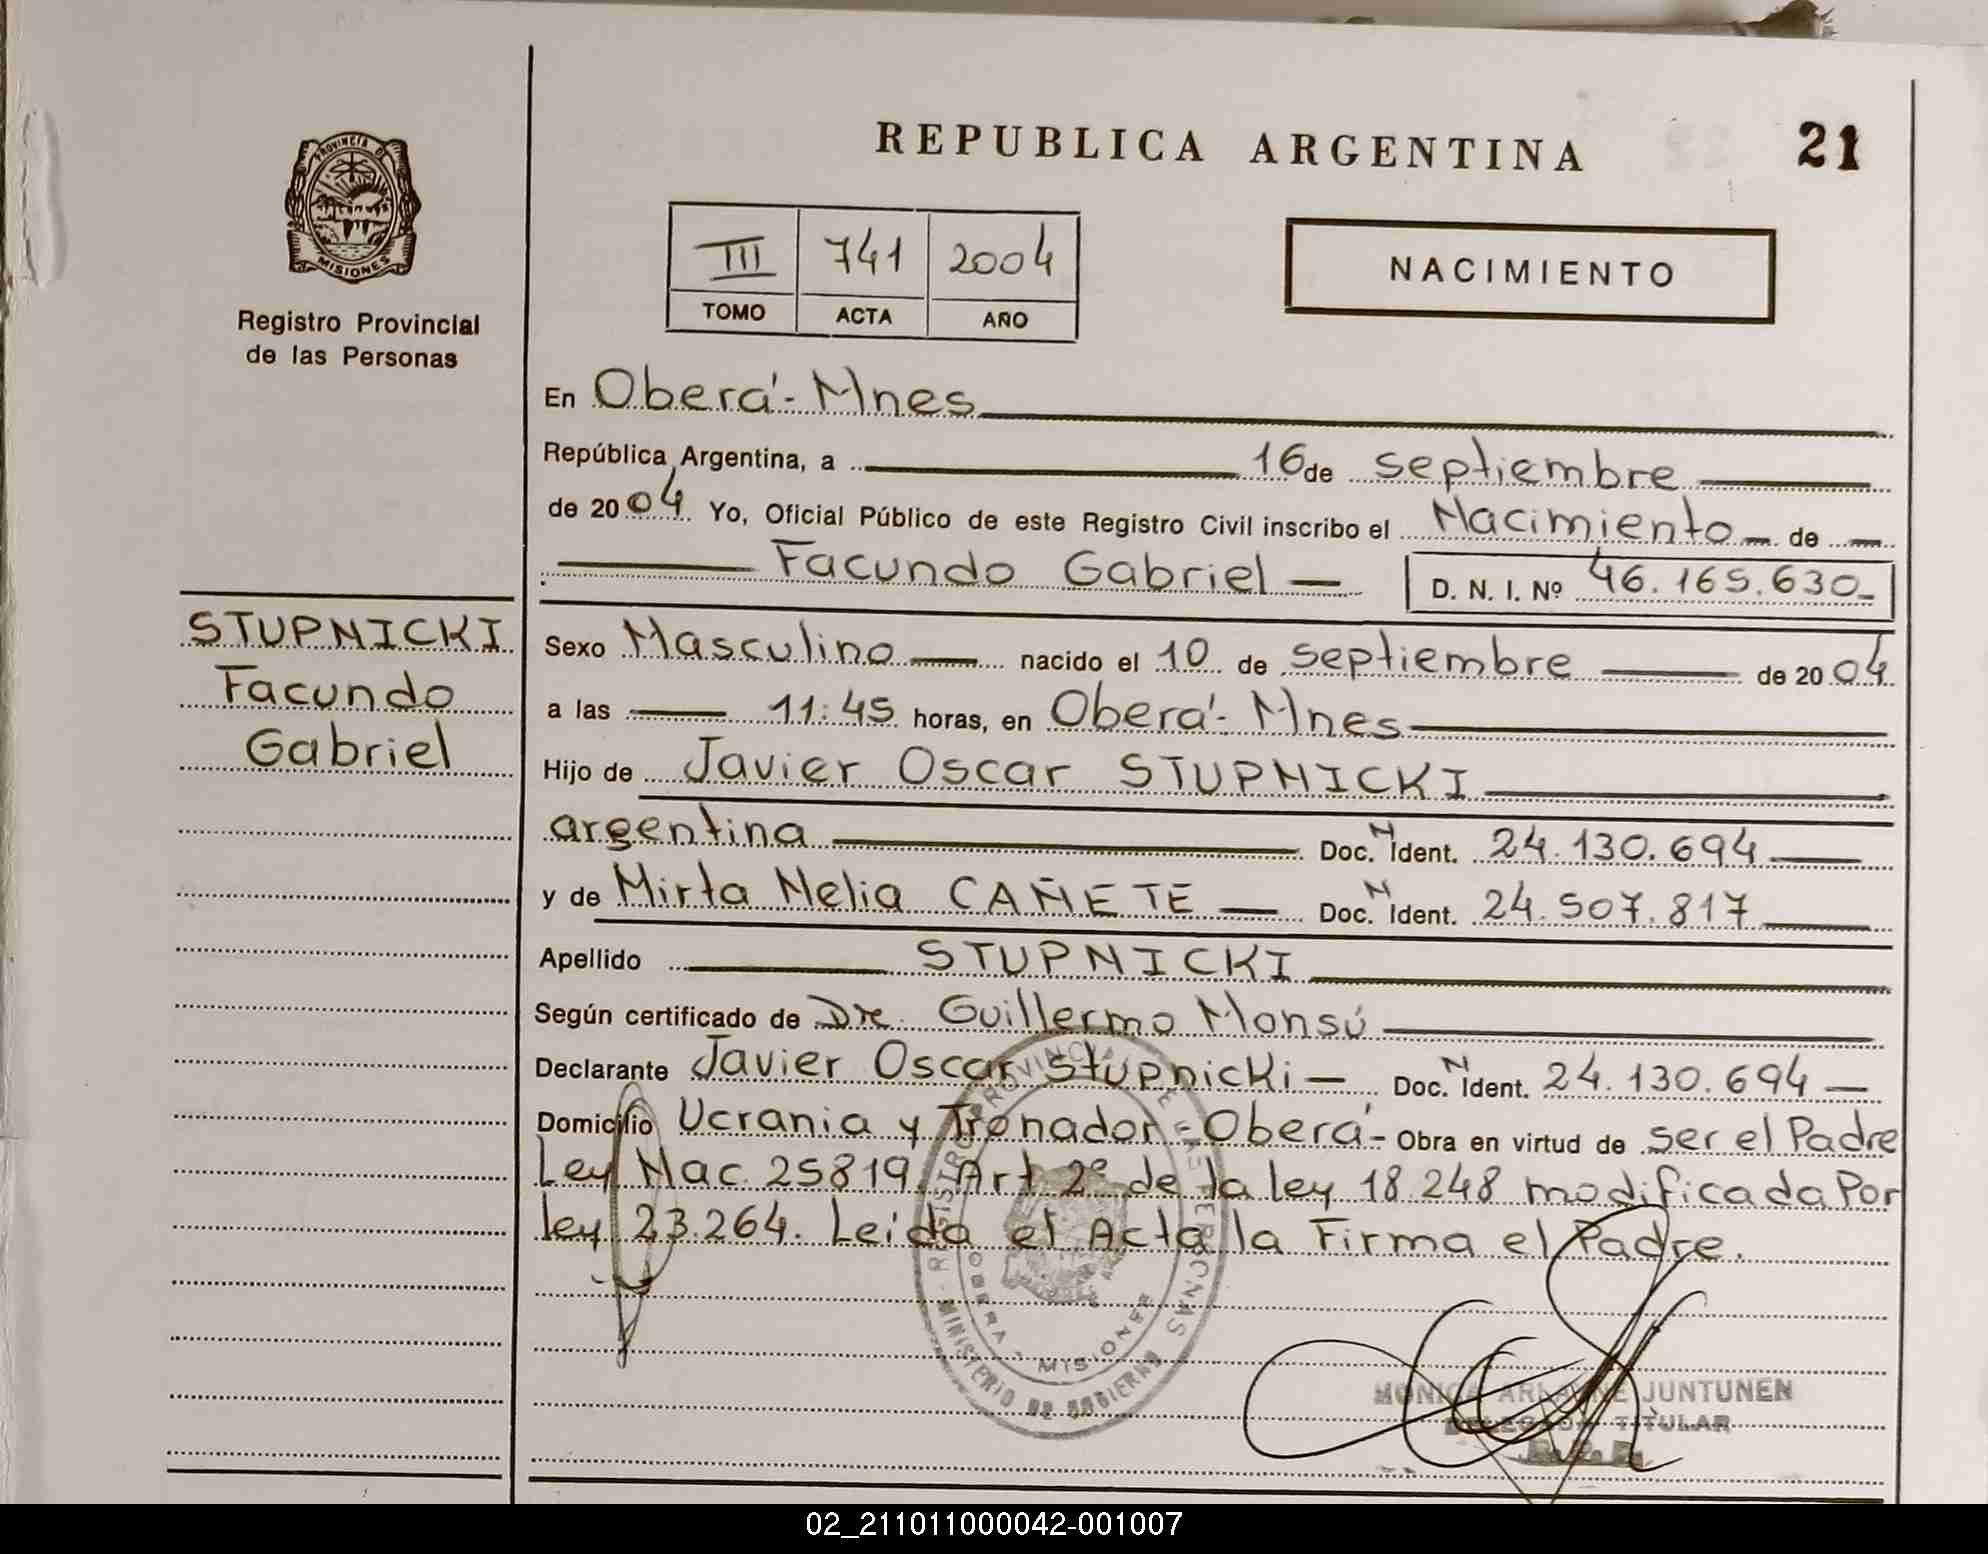 REPUBLICA ARGENTINA
21
PROVINCIA DE
MISIONES
Registro Provincial
de las Personas
III 741 2004
TOMO ACTA AÑO
NACIMIENTO
En Oberá - Mnes
República Argentina, a 16 de septiembre
de 2004 Yo, Oficial Público de este Registro Civil inscribo el Nacimiento de
Facundo Gabriel D. N. I. Nº 46.165.630
STUPNICKI
Facundo
Gabriel
Sexo Masculino nacido el 10 de septiembre de 2004
a las 11:45 horas, en Oberá - Mnes
Hijo de Javier Oscar STUPNICKI
argentina Doc. N Ident. 24.130.694
y de Mirta Nelia CAÑETE Doc. N Ident. 24.507.817
Apellido STUPNICKI
Según certificado de Dr. Guillermo Monsú
Declarante Javier Oscar Stupnicki Doc. N Ident. 24.130.694
Domicilio Ucrania y Tronador - Oberá - Obra en virtud de ser el Padre
Ley Nac. 25819. Art 2º de la ley 18.248 modificada Por
ley 23.264. Leída el Acta la Firma el Padre.
MINISTERIO DE GOBIERNO
OBERA - MISIONES
JUNTUNEN
TITULAR
02_211011000042-001007